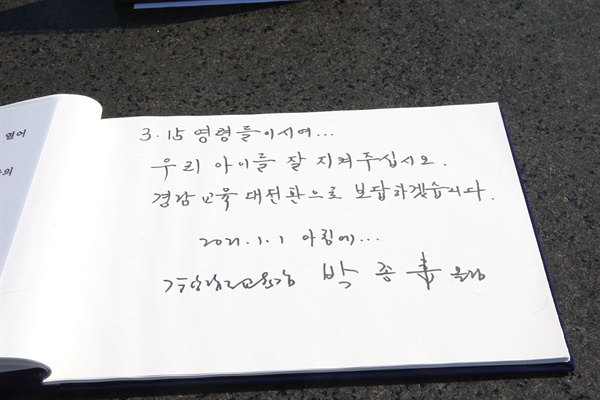 열어
의
3.15 영령들이시여...
우리 아이를 잘 지켜주십시오.
경남교육 대전환으로 보답하겠습니다.
2021.1.1 아침에...
경상남도교육감 박종훈 올림